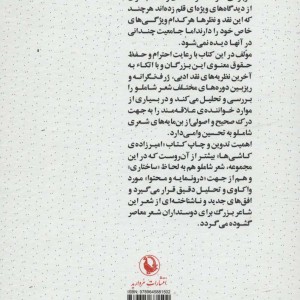 از دیدگاه‌های ویژه‌ای قلم زده‌اند هرچند
که این نقد و نظرها هرکدام ویژگی‌های
خاص خود را دارند اما جامعیت چندانی
در آنها دیده نمی‌شود.
مؤلف در این کتاب با رعایت احترام و حفظ
حقوق معنوی این بزرگان و با اتکاء به
آخرین نظریه‌های نقد ادبی، ژرف‌نگرانه و
ریزبین دوره‌های مختلف شعر شاملو را
بررسی و تحلیل می‌کند و در بسیاری از
موارد خواننده‌ی علاقه‌مند را به جهت
درک صحیح و اصولی از بن‌مایه‌های شعری
شاملو به تحسین وامی‌دارد.
اهمیت تدوین و چاپ کتاب «امیرزاده‌ی
کاشی‌ها» بیشتر از آن‌روست که در این
مجموعه، شعر شاملو هم به لحاظ «ساختاری»
و هم از جهت «درونمایه و محتوا» مورد
واکاوی و تحلیل دقیق قرار می‌گیرد و
افق‌های جدید و ناشناخته‌ای از شعر این
شاعر بزرگ برای دوستداران شعر معاصر
گشوده می‌گردد.
انتشارات مروارید